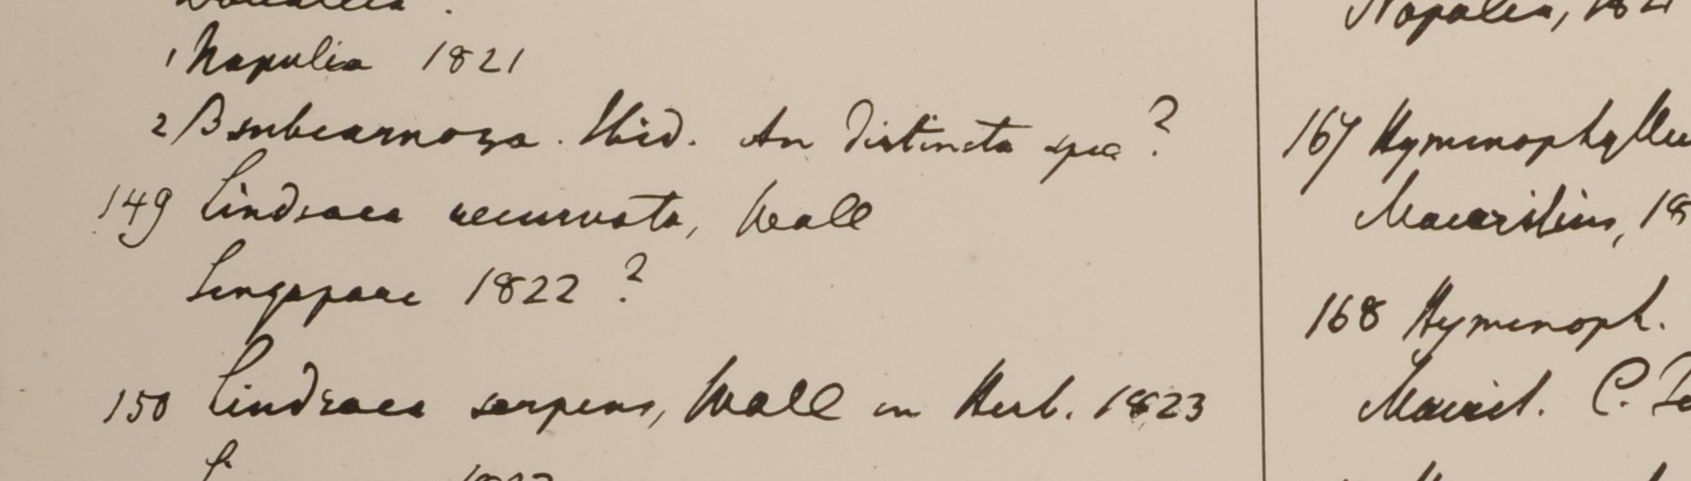 1 Napalia 1821
2 β subcarnosa. Ibid. An distincta spec?
149 Lindsaea recurvata, Wall
Singapore 1822 ?
150 Lindsaea serpens, Wall in Herb. 1823
Napalia, 182
167 Hymenophyllu
Mauritius, 18
168 Hymenoph.
Maurit. C.